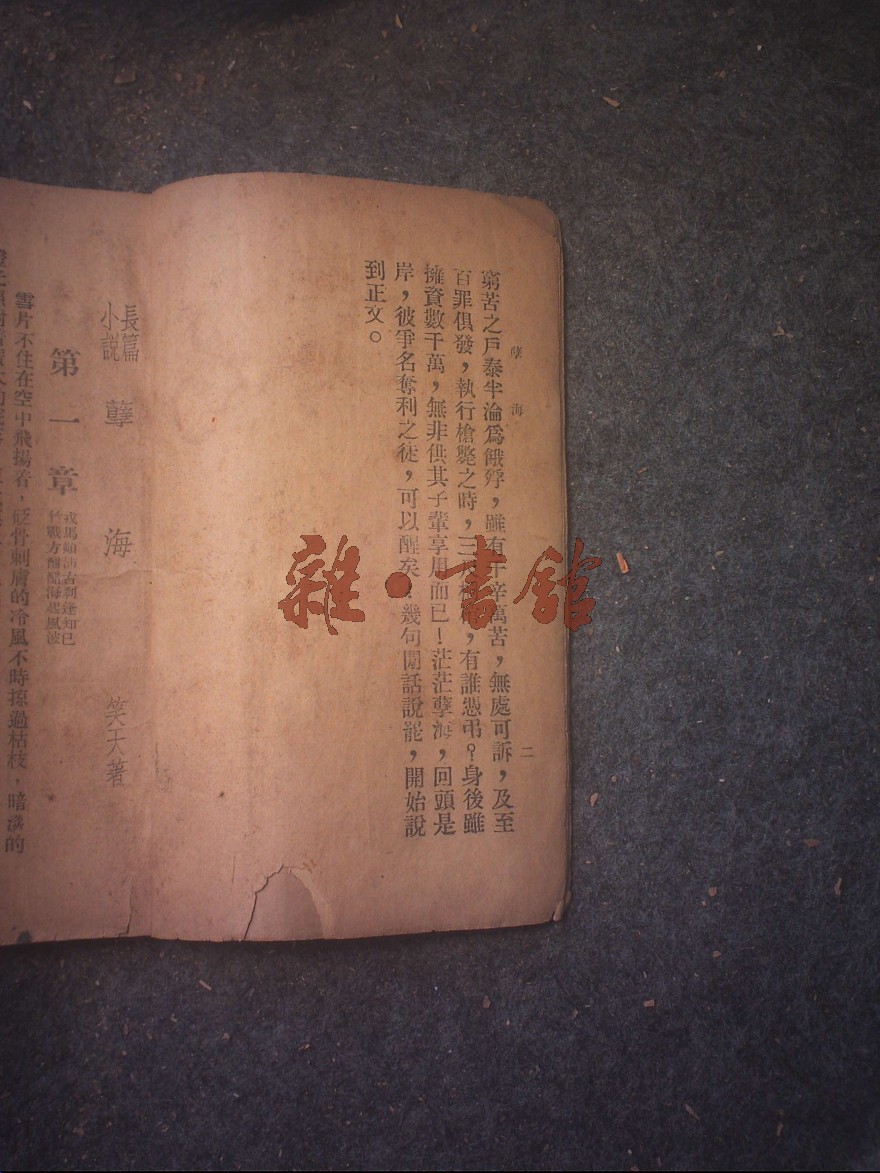 孽海
二
窮苦之戶泰半淪爲餓殍，雖有千辛萬苦，無處可訴，及至
百罪俱發，執行槍斃之時，三，有誰憑弔？身後雖
擁資數千萬，無非供其子輩享用而已！茫茫孽海，回頭是
岸，彼爭名奪利之徒，可以醒矣！幾句閒話說罷，開始說
到正文。
長篇小說 孽海 笑天著
第一章
戎馬 古刹逢知己
竹戰方酣醋海起風波
雪片不住在空中飛揚着，砭骨刺膚的冷風不時掠過枯枝，暗淡的
雜·書館